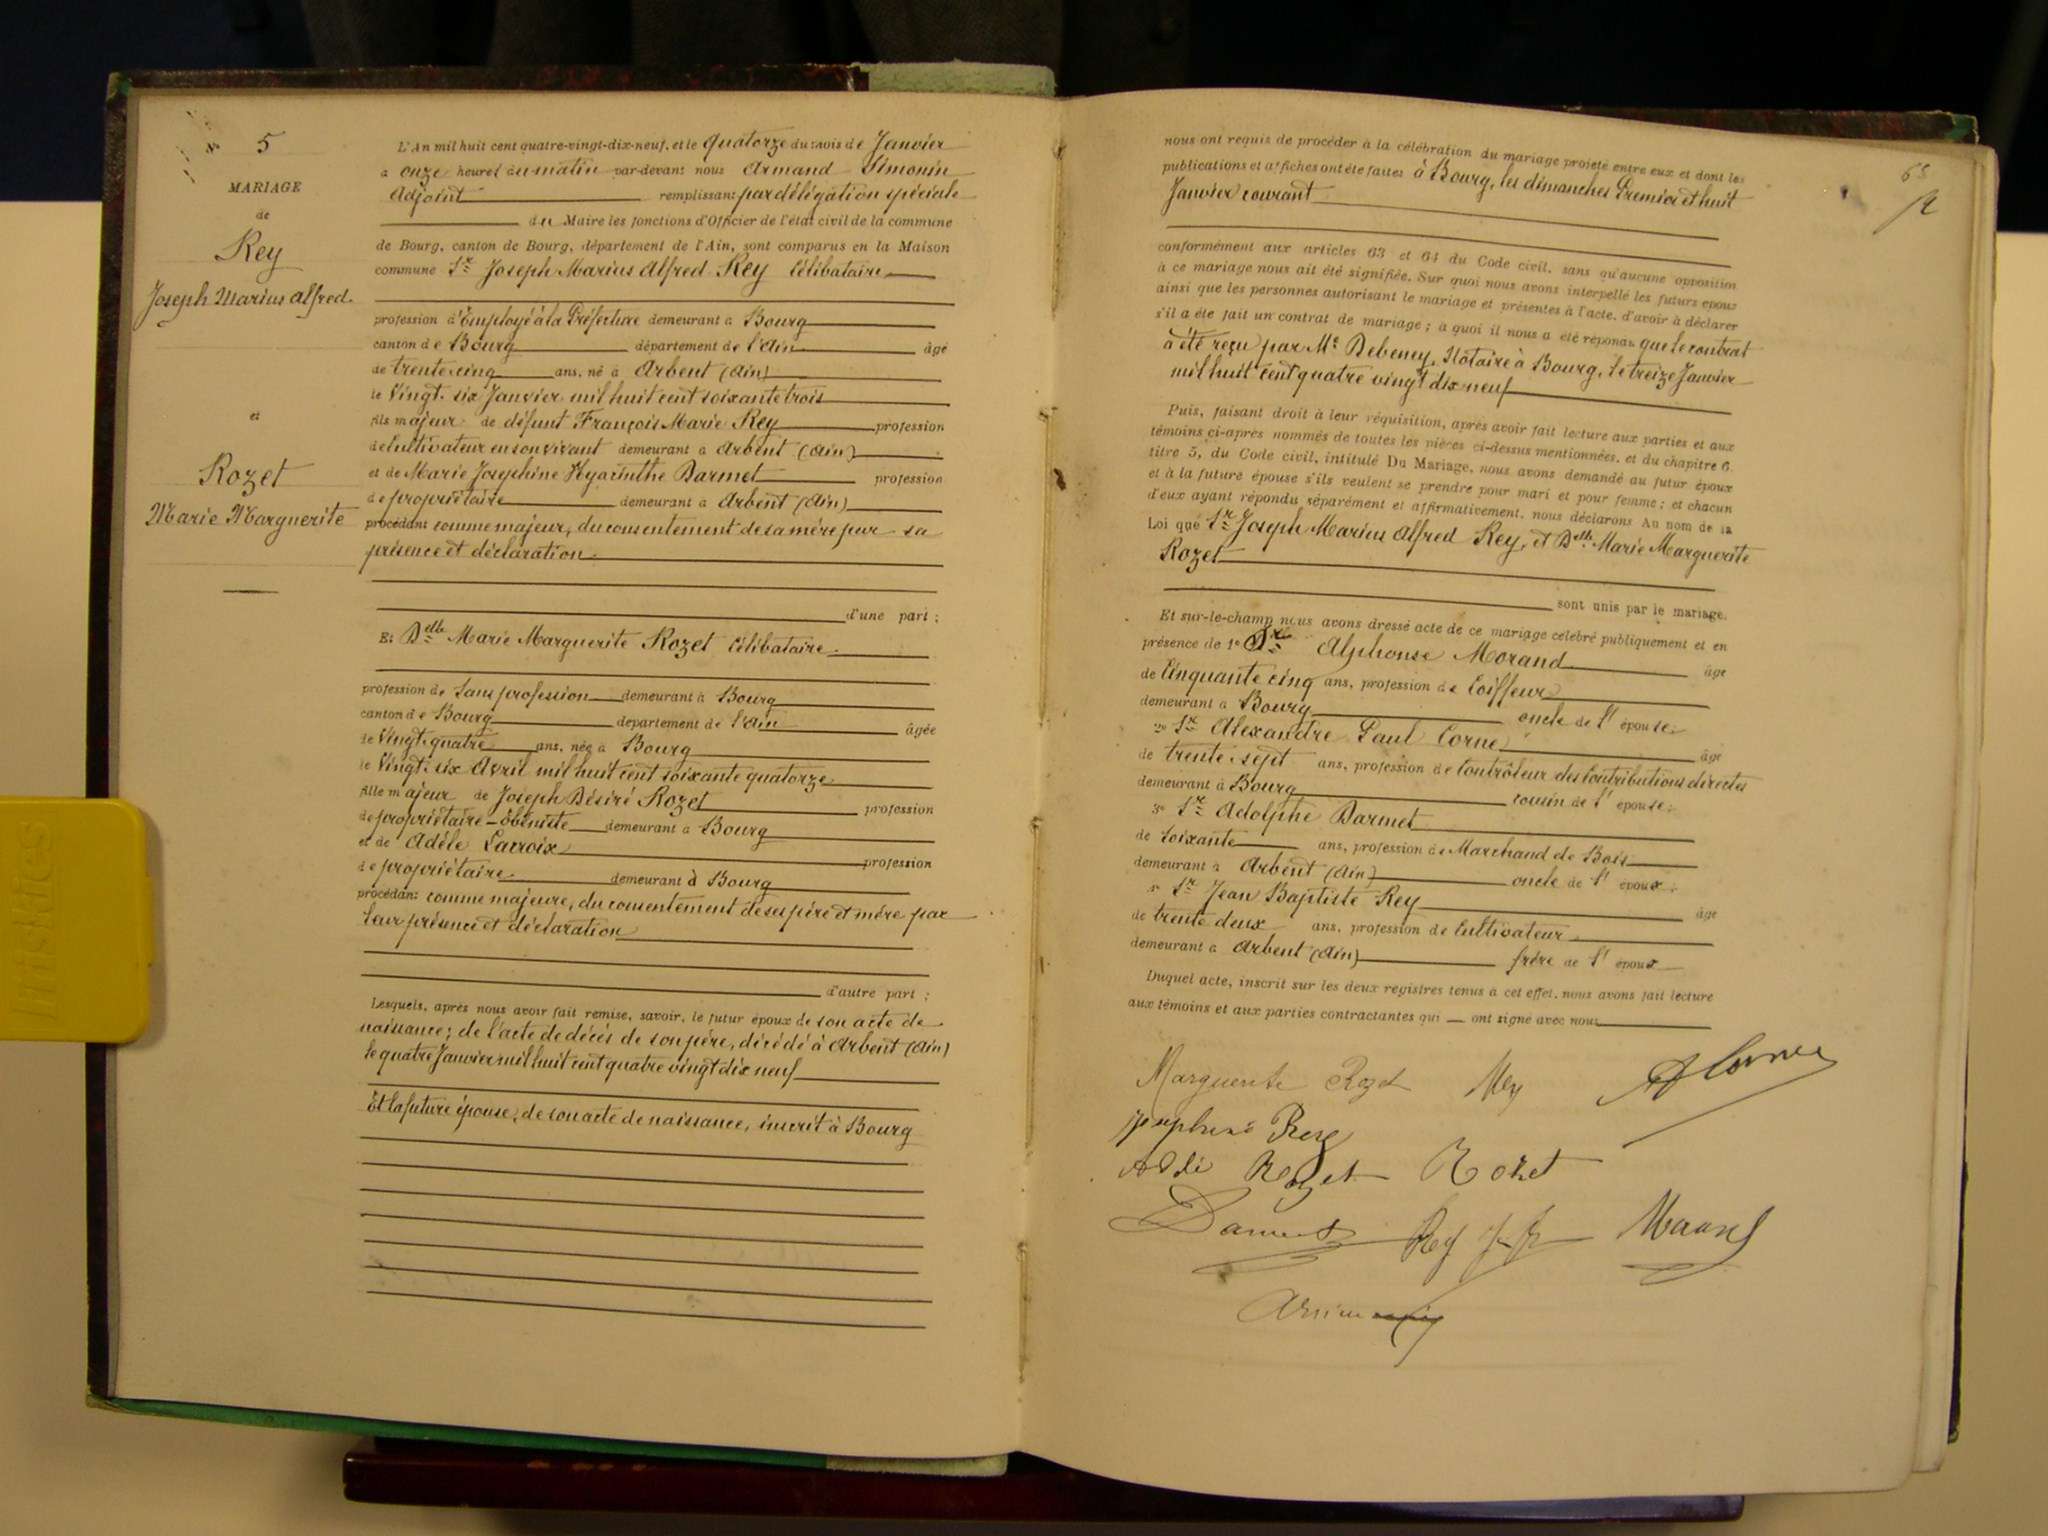 N° 5
MARIAGE
de
Rey
Joseph Marius Alfred.
et
Rozet
Marie Marguerite
L'An mil huit cent quatre-vingt-dix-neuf, et le quatorze du mois de Janvier
à onze heures du matin par-devant nous Armand Simonin
Adjoint remplissant par délégation spéciale
du Maire les fonctions d'Officier de l'état civil de la commune
de Bourg, canton de Bourg, département de l'Ain, sont comparus en la Maison
commune Sr Joseph Marius Alfred Rey Célibataire
profession d'Employé à la Préfecture demeurant à Bourg
canton de Bourg département de l'Ain âgé
de trente cinq ans, né à Arbent (Ain)
le Vingt-six Janvier mil huit cent soixante trois
fils majeur de défunt François Marie Rey profession
de Cultivateur en son vivant demeurant à Arbent (Ain)
et de Marie Joséphine Hyacinthe Darmet profession
de propriétaire demeurant à Arbent (Ain)
procédant comme majeur, du consentement de sa mère par sa
présence et déclaration
d'une part ;
Et Dlle Marie Marguerite Rozet Célibataire
profession de Sans profession demeurant à Bourg
canton de Bourg département de l'Ain âgée
de Vingt-quatre ans, née à Bourg
le Vingt-six Avril mil huit cent soixante quatorze
fille majeur de Joseph Désiré Rozet profession
de propriétaire-Ébéniste demeurant à Bourg
et de Adèle Lacroix profession
de propriétaire demeurant à Bourg
procédant comme majeure, du consentement de ses père et mère par
leur présence et déclaration
d'autre part ;
Lesquels, après nous avoir fait remise, savoir, le futur époux de son acte de
naissance ; de l'acte de décès de son père, décédé à Arbent (Ain)
le quatre Janvier mil huit cent quatre vingt dix neuf
Et la future épouse, de son acte de naissance, inscrit à Bourg
68
nous ont requis de procéder à la célébration du mariage projeté entre eux et dont les
publications et affiches ont été faites à Bourg, les dimanches Premier et huit
Janvier courant
conformément aux articles 63 et 64 du Code civil, sans qu'aucune opposition
à ce mariage nous ait été signifiée. Sur quoi nous avons interpellé les futurs époux
ainsi que les personnes autorisant le mariage et présentes à l'acte, d'avoir à déclarer
s'il a été fait un contrat de mariage ; à quoi il nous a été répondu que le contrat
a été reçu par Me Debeney, Notaire à Bourg, le treize Janvier
mil huit cent quatre vingt dix neuf
Puis, faisant droit à leur réquisition, après avoir fait lecture aux parties et aux
témoins ci-après nommés de toutes les pièces ci-dessus mentionnées, et du chapitre 6
titre 5, du Code civil, intitulé Du Mariage, nous avons demandé au futur époux
et à la future épouse s'ils veulent se prendre pour mari et pour femme ; et chacun
d'eux ayant répondu séparément et affirmativement, nous déclarons Au nom de la
Loi que Sr Joseph Marius Alfred Rey, et Dlle Marie Marguerite
Rozet
sont unis par le mariage.
Et sur-le-champ nous avons dressé acte de ce mariage célébré publiquement et en
présence de 1° Sr Alphonse Morand âgé
de Cinquante cinq ans, profession de Coiffeur
demeurant à Bourg oncle de l' épouse ;
2° Sr Alexandre Paul Corne âgé
de trente-sept ans, profession de Contrôleur des Contributions directes
demeurant à Bourg cousin de l' épouse ;
3° Sr Adolphe Darmet
de soixante ans, profession de Marchand de Bois
demeurant à Arbent (Ain) oncle de l' époux ;
Sr Jean Baptiste Rey âgé
de trente deux ans, profession de Cultivateur
demeurant à Arbent (Ain) frère de l' époux
Duquel acte, inscrit sur les deux registres tenus à cet effet, nous avons fait lecture
aux témoins et aux parties contractantes qui ont signé avec nous
Marguerite Rozet Rey A Corne
Rozet Rozet
Darmet Rey